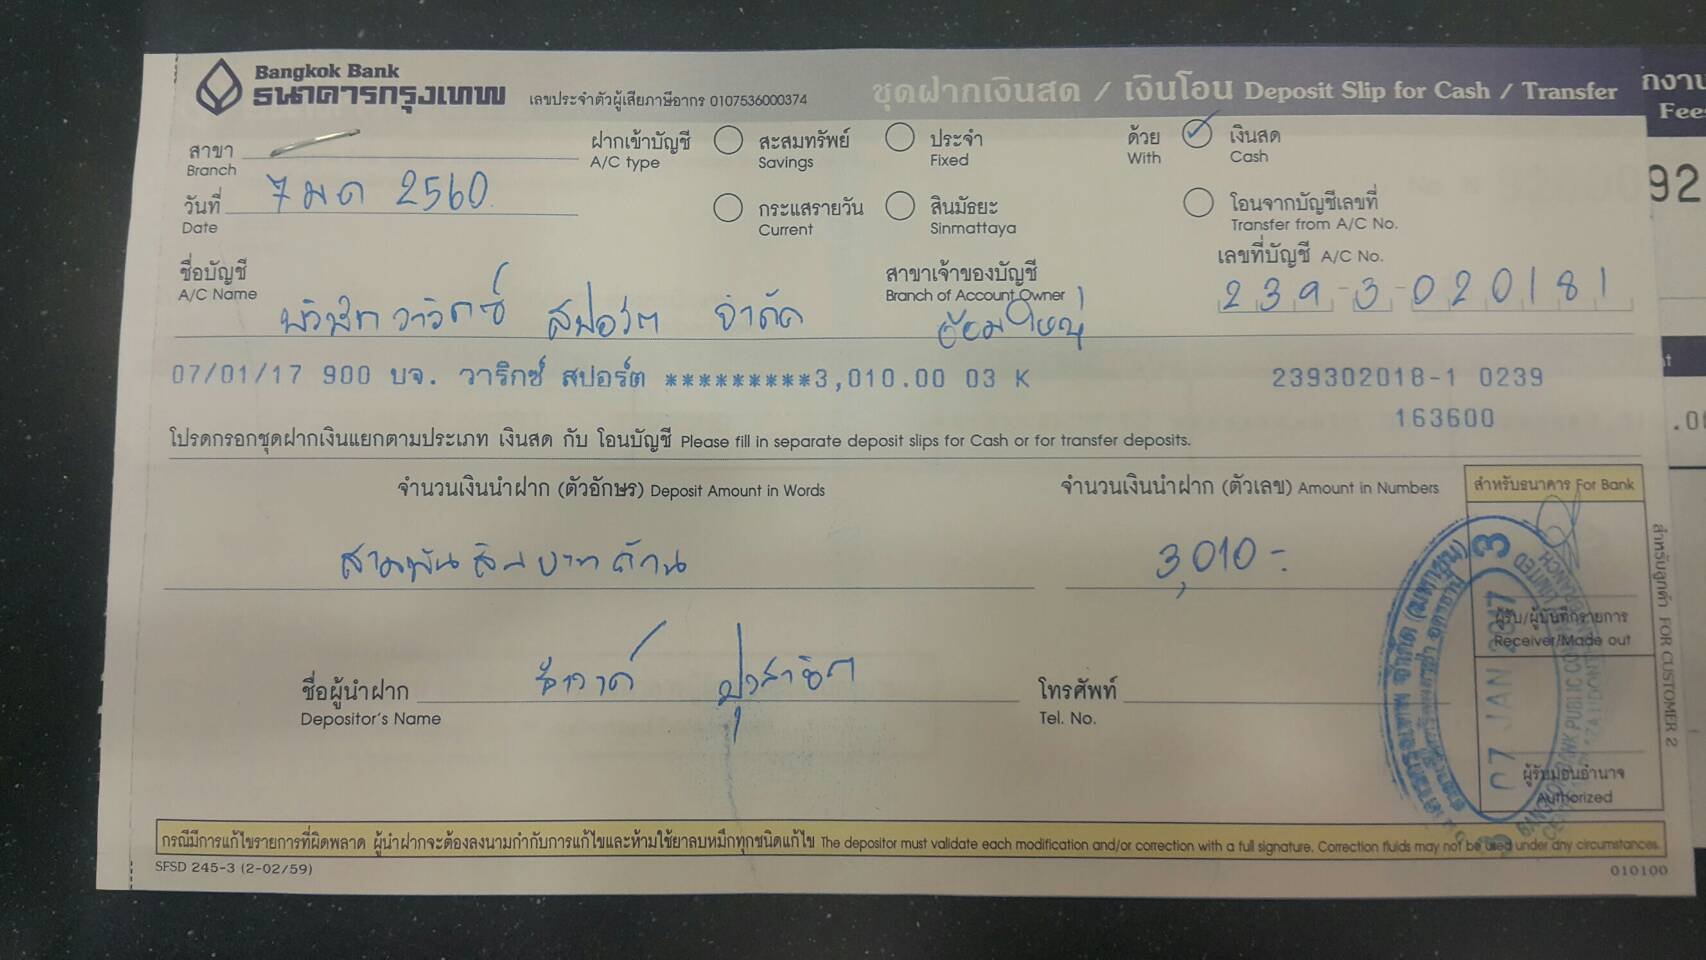 Bangkok Bank
ธนาคารกรุงเทพ
เลขประจำตัวผู้เสียภาษีอากร 0107536000374
ชุดฝากเงินสด / เงินโอน Deposit Slip for Cash / Transfer
Fee
สาขา
Branch
ฝากเข้าบัญชี
A/C type
สะสมทรัพย์
Savings
ประจำ
Fixed
ด้วย
With
เงินสด
Cash
วันที่ 7 มค 2560
Date
กระแสรายวัน
Current
สินมัธยะ
Sinmattaya
โอนจากบัญชีเลขที่
Transfer from A/C No.
92
ชื่อบัญชี
A/C Name
สปอร์ต จำกัด
สาขาเจ้าของบัญชี
Branch of Account Owner
อ้อมใหญ่
เลขที่บัญชี A/C No.
239-3-020181
07/01/17 900 บจ. วาริกซ์ สปอร์ต *********3,010.00 03 K 239302018-1 0239
163600
โปรดกรอกชุดฝากเงินแยกตามประเภท เงินสด กับ โอนบัญชี Please fill in separate deposit slips for Cash or for transfer deposits.
จำนวนเงินนำฝาก (ตัวอักษร) Deposit Amount in Words
จำนวนเงินนำฝาก (ตัวเลข) Amount in Numbers
สำหรับธนาคาร For Bank
สามพันสิบบาทถ้วน
3,010-:
ผู้รับ/ผู้บันทึกรายการ
Receiver/Made out
สำหรับลูกค้า FOR CUSTOMER 2
07 JAN 2017
ชื่อผู้นำฝาก
Depositor's Name
โทรศัพท์
Tel. No.
ผู้รับมอบอำนาจ
Authorized
กรณีมีการแก้ไขรายการที่ผิดพลาด ผู้นำฝากจะต้องลงนามกำกับการแก้ไขและห้ามใช้ยาลบหมึกทุกชนิดแก้ไข The depositor must validate each modification and/or correction with a full signature. Correction fluids may not be used under any circumstances.
SFSD 245-3 (2-02/59)
010100